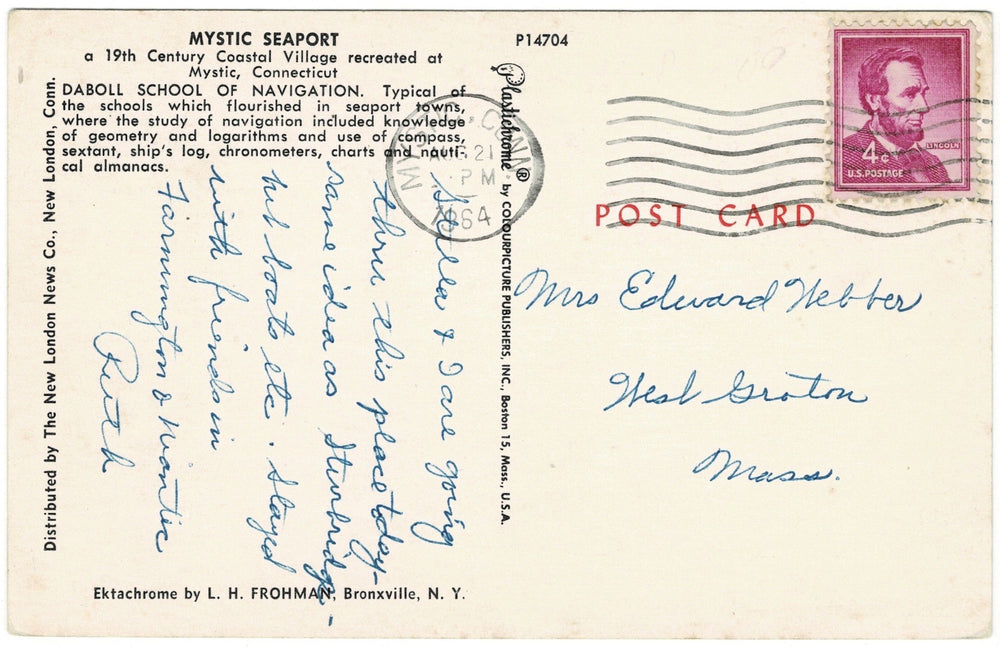 MYSTIC SEAPORT
a 19th Century Coastal Village recreated at
Mystic, Connecticut
DABOLL SCHOOL OF NAVIGATION. Typical of
the schools which flourished in seaport towns,
where the study of navigation included knowledge
of geometry and logarithms and use of compass,
sextant, ship's log, chronometers, charts and nauti-
cal almanacs.
Stella & I are going
thru this place today-
same idea as Sturbridge-
but boats etc. Stayed
with friends in
Farmington & Niantic
Ruth
Ektachrome by L. H. FROHMAN, Bronxville, N. Y.
Distributed by The New London News Co., New London, Conn.
P14704
Plastichrome® by COLOURPICTURE PUBLISHERS, INC., Boston 15, Mass., U.S.A.
MYSTIC, CONN.
AUG 21
PM
1964
LINCOLN
4¢
U.S. POSTAGE
POST CARD
Mrs Edward Webber
West Groton
Mass.